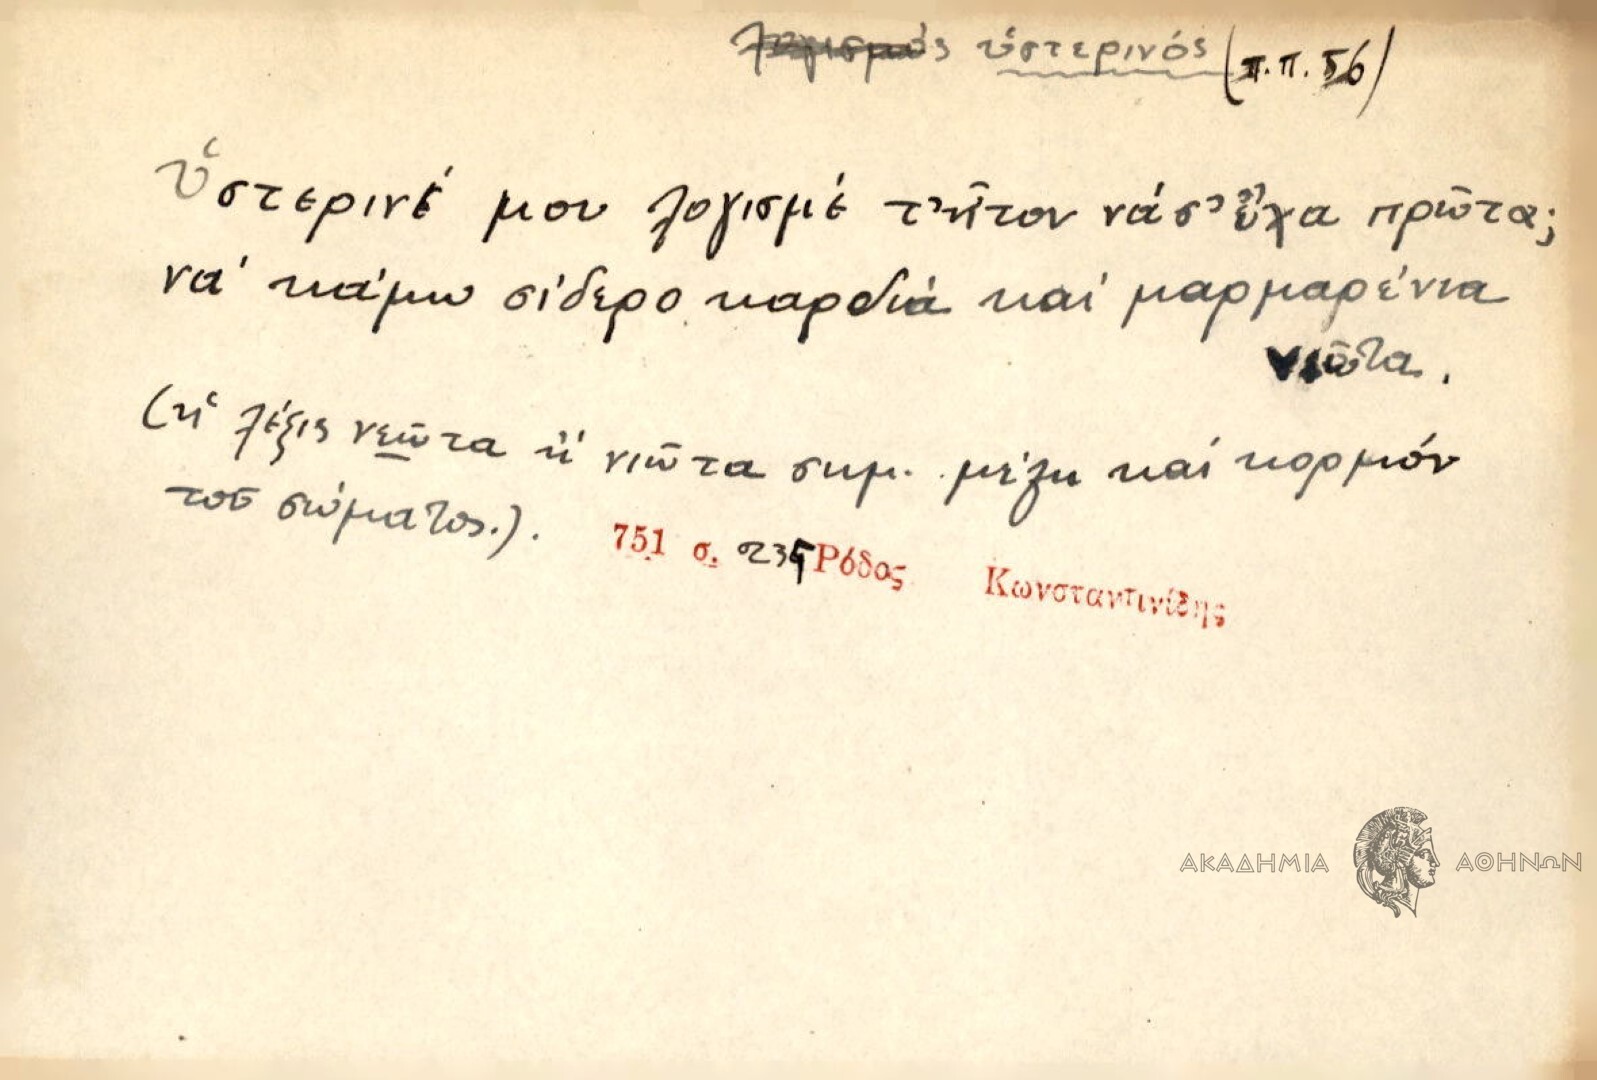 λογισμός ὑστερινός (π.π. 56)
Ὑστερινέ μου λογισμέ τ' ἦτον νά σ' εἶχα πρῶτα;
νά κάμω σίδερο καρδιά καί μαρμαρένια
νιῶτα.
(ἡ λέξις νεῶτα ἤ νιῶτα σημ. μέλη καί κορμόν
τοῦ σώματος.).
751 σ. 235 Ρόδος Κωνσταντινίδης
ΑΚΑΔΗΜΙΑ ΑΘΗΝΩΝ